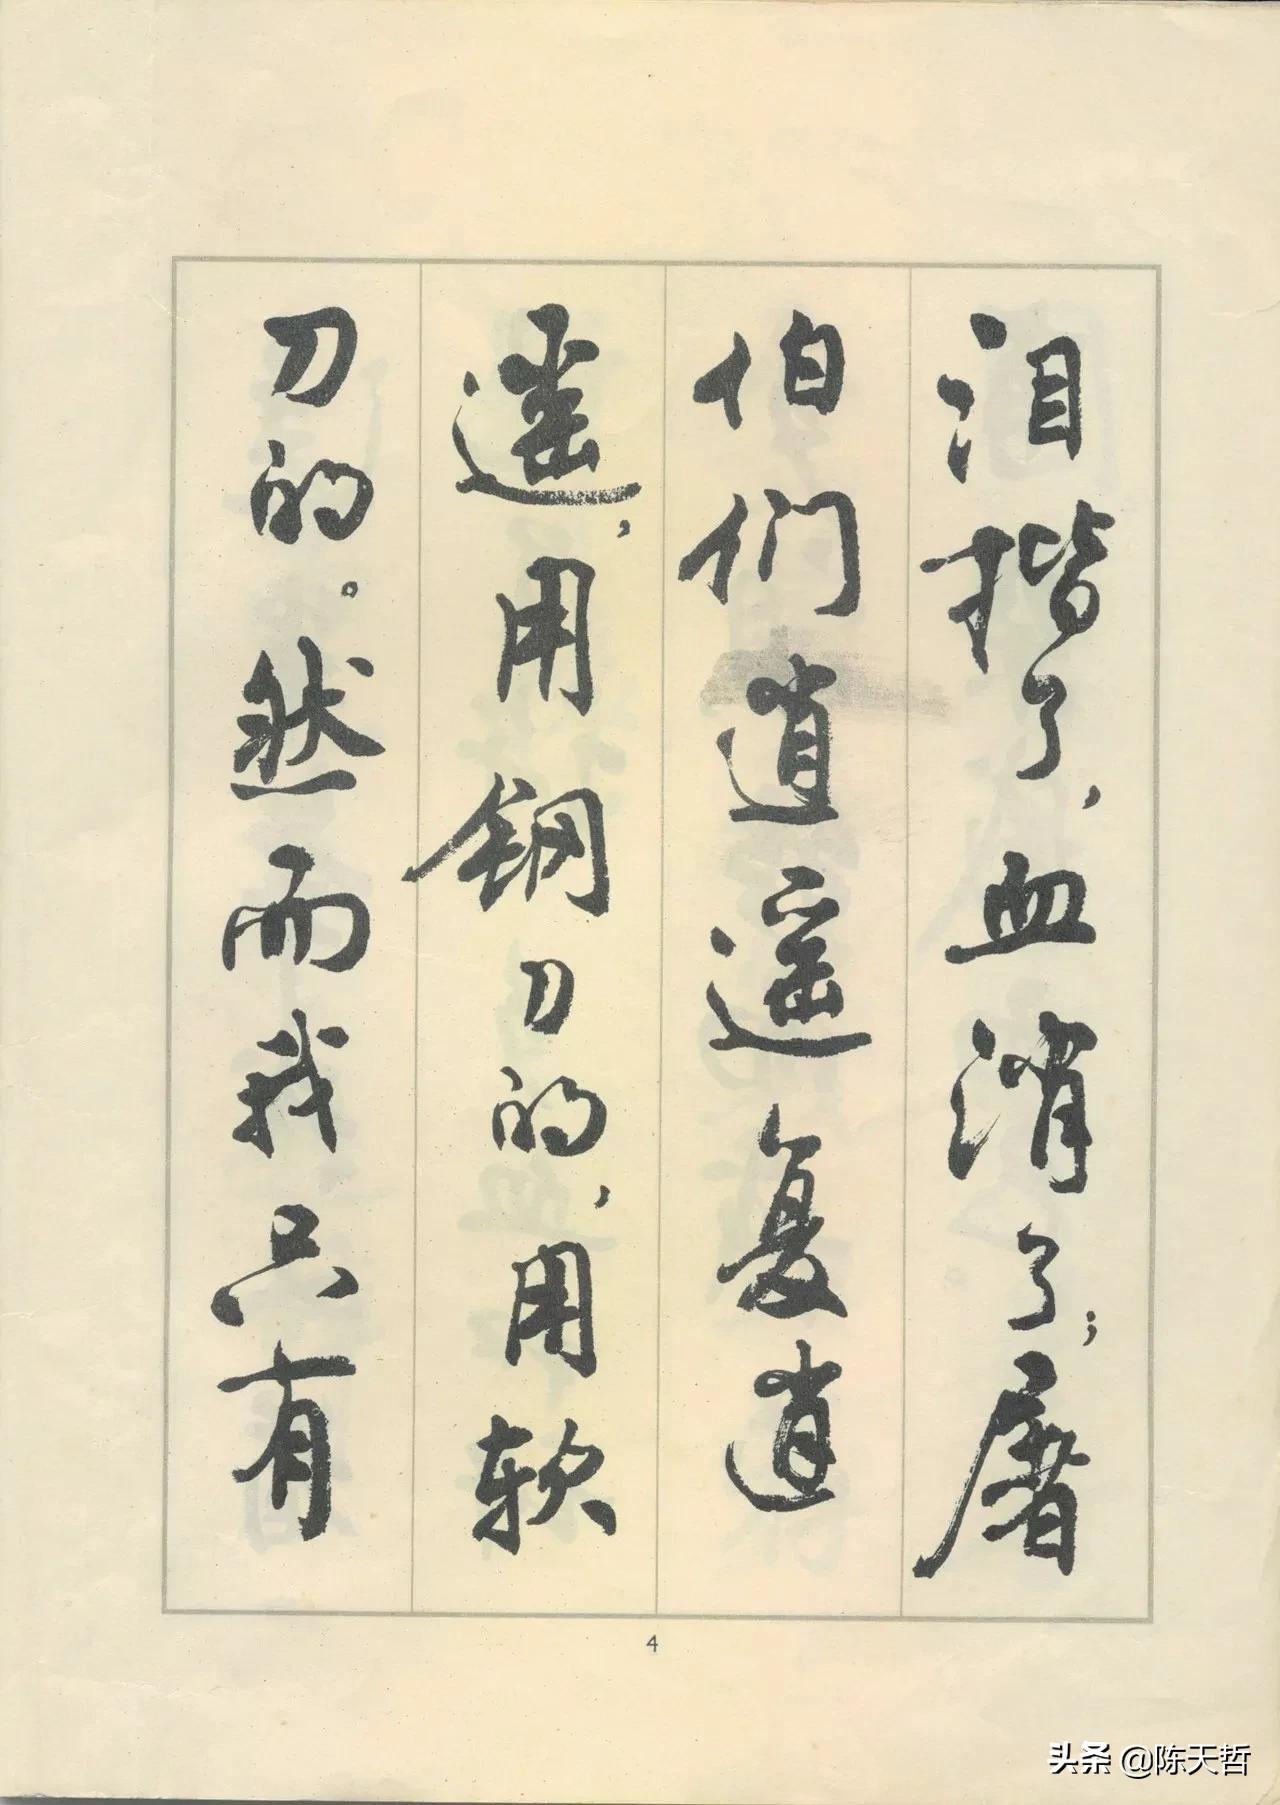 泪揩了，血消了；屠
伯们逍遥复逍
遥，用钢刀的，用软
刀的。然而我只有
4
头条 @陈天哲